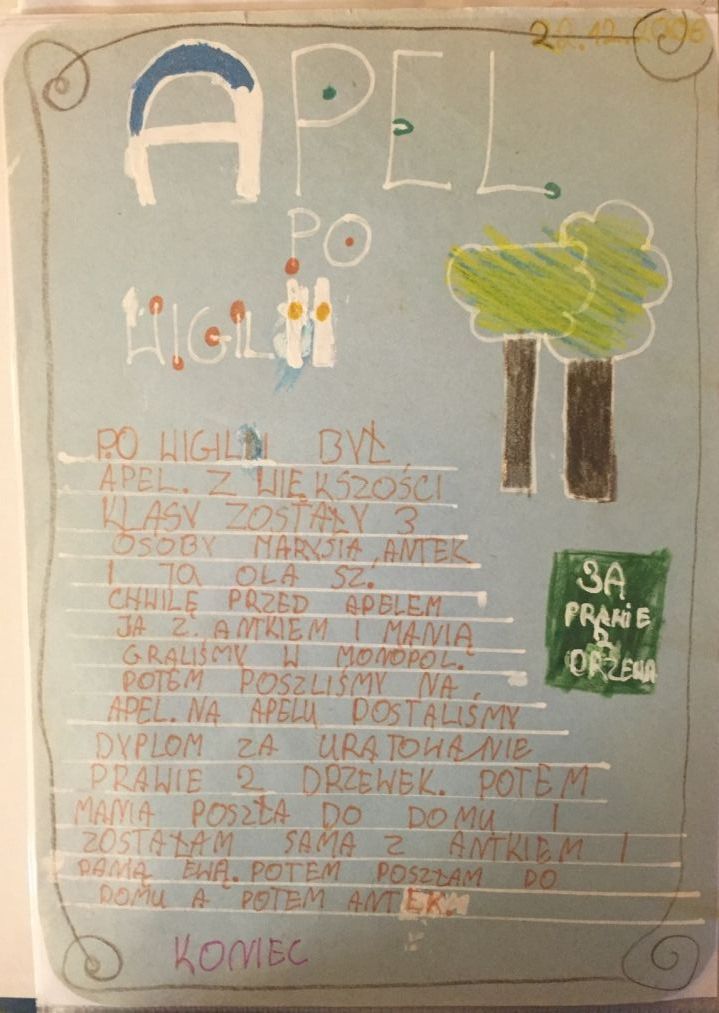 22.12.2006
APEL
PO
WIGILII
PO WIGILII BYŁ
APEL. Z WIĘKSZOŚCI
KLASY ZOSTAŁY 3
OSOBY MARYSIA, ANTEK
I JA OLA SZ.
CHWILĘ PRZED APELEM
JA Z ANTKIEM I MANIĄ
GRALIŚMY W MONOPOL.
POTEM POSZLIŚMY NA
APEL. NA APELU DOSTALIŚMY
DYPLOM ZA URATOWANIE
PRAWIE 2 DRZEWEK. POTEM
MANIA POSZŁA DO DOMU I
ZOSTAŁAM SAMA Z ANTKIEM I
PANIĄ EWĄ. POTEM POSZŁAM DO
DOMU A POTEM ANTEK.
KONIEC
ZA
PRAWIE
2
DRZEWA